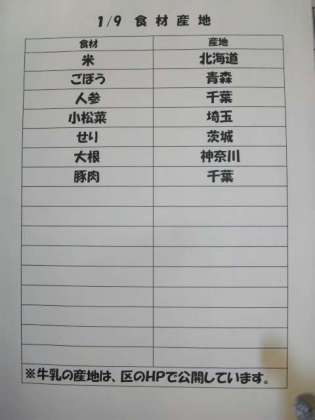 1/9 食材産地
食材 産地
米 北海道
ごぼう 青森
人参 千葉
小松菜 埼玉
せり 茨城
大根 神奈川
豚肉 千葉
※牛乳の産地は、区のHPで公開しています。